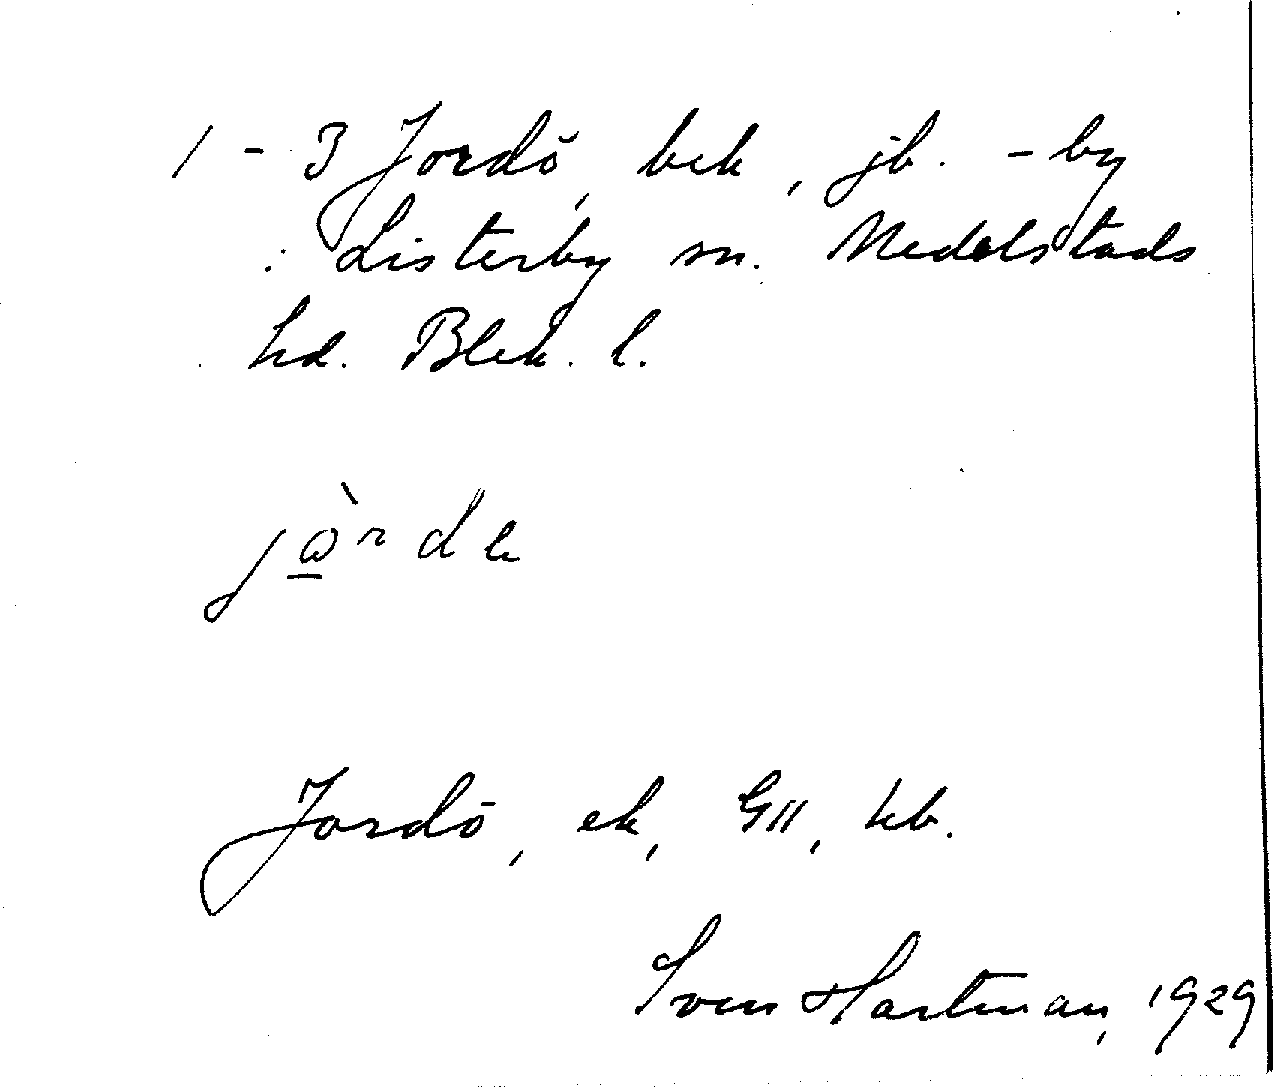 1 - 3 Jordö, bek, jb. - by
Listerby sn. Medelstads
hd. Blek. l.
jò̠rde
Jordö, ek, GII, kb.
Sven Hartman, 1929